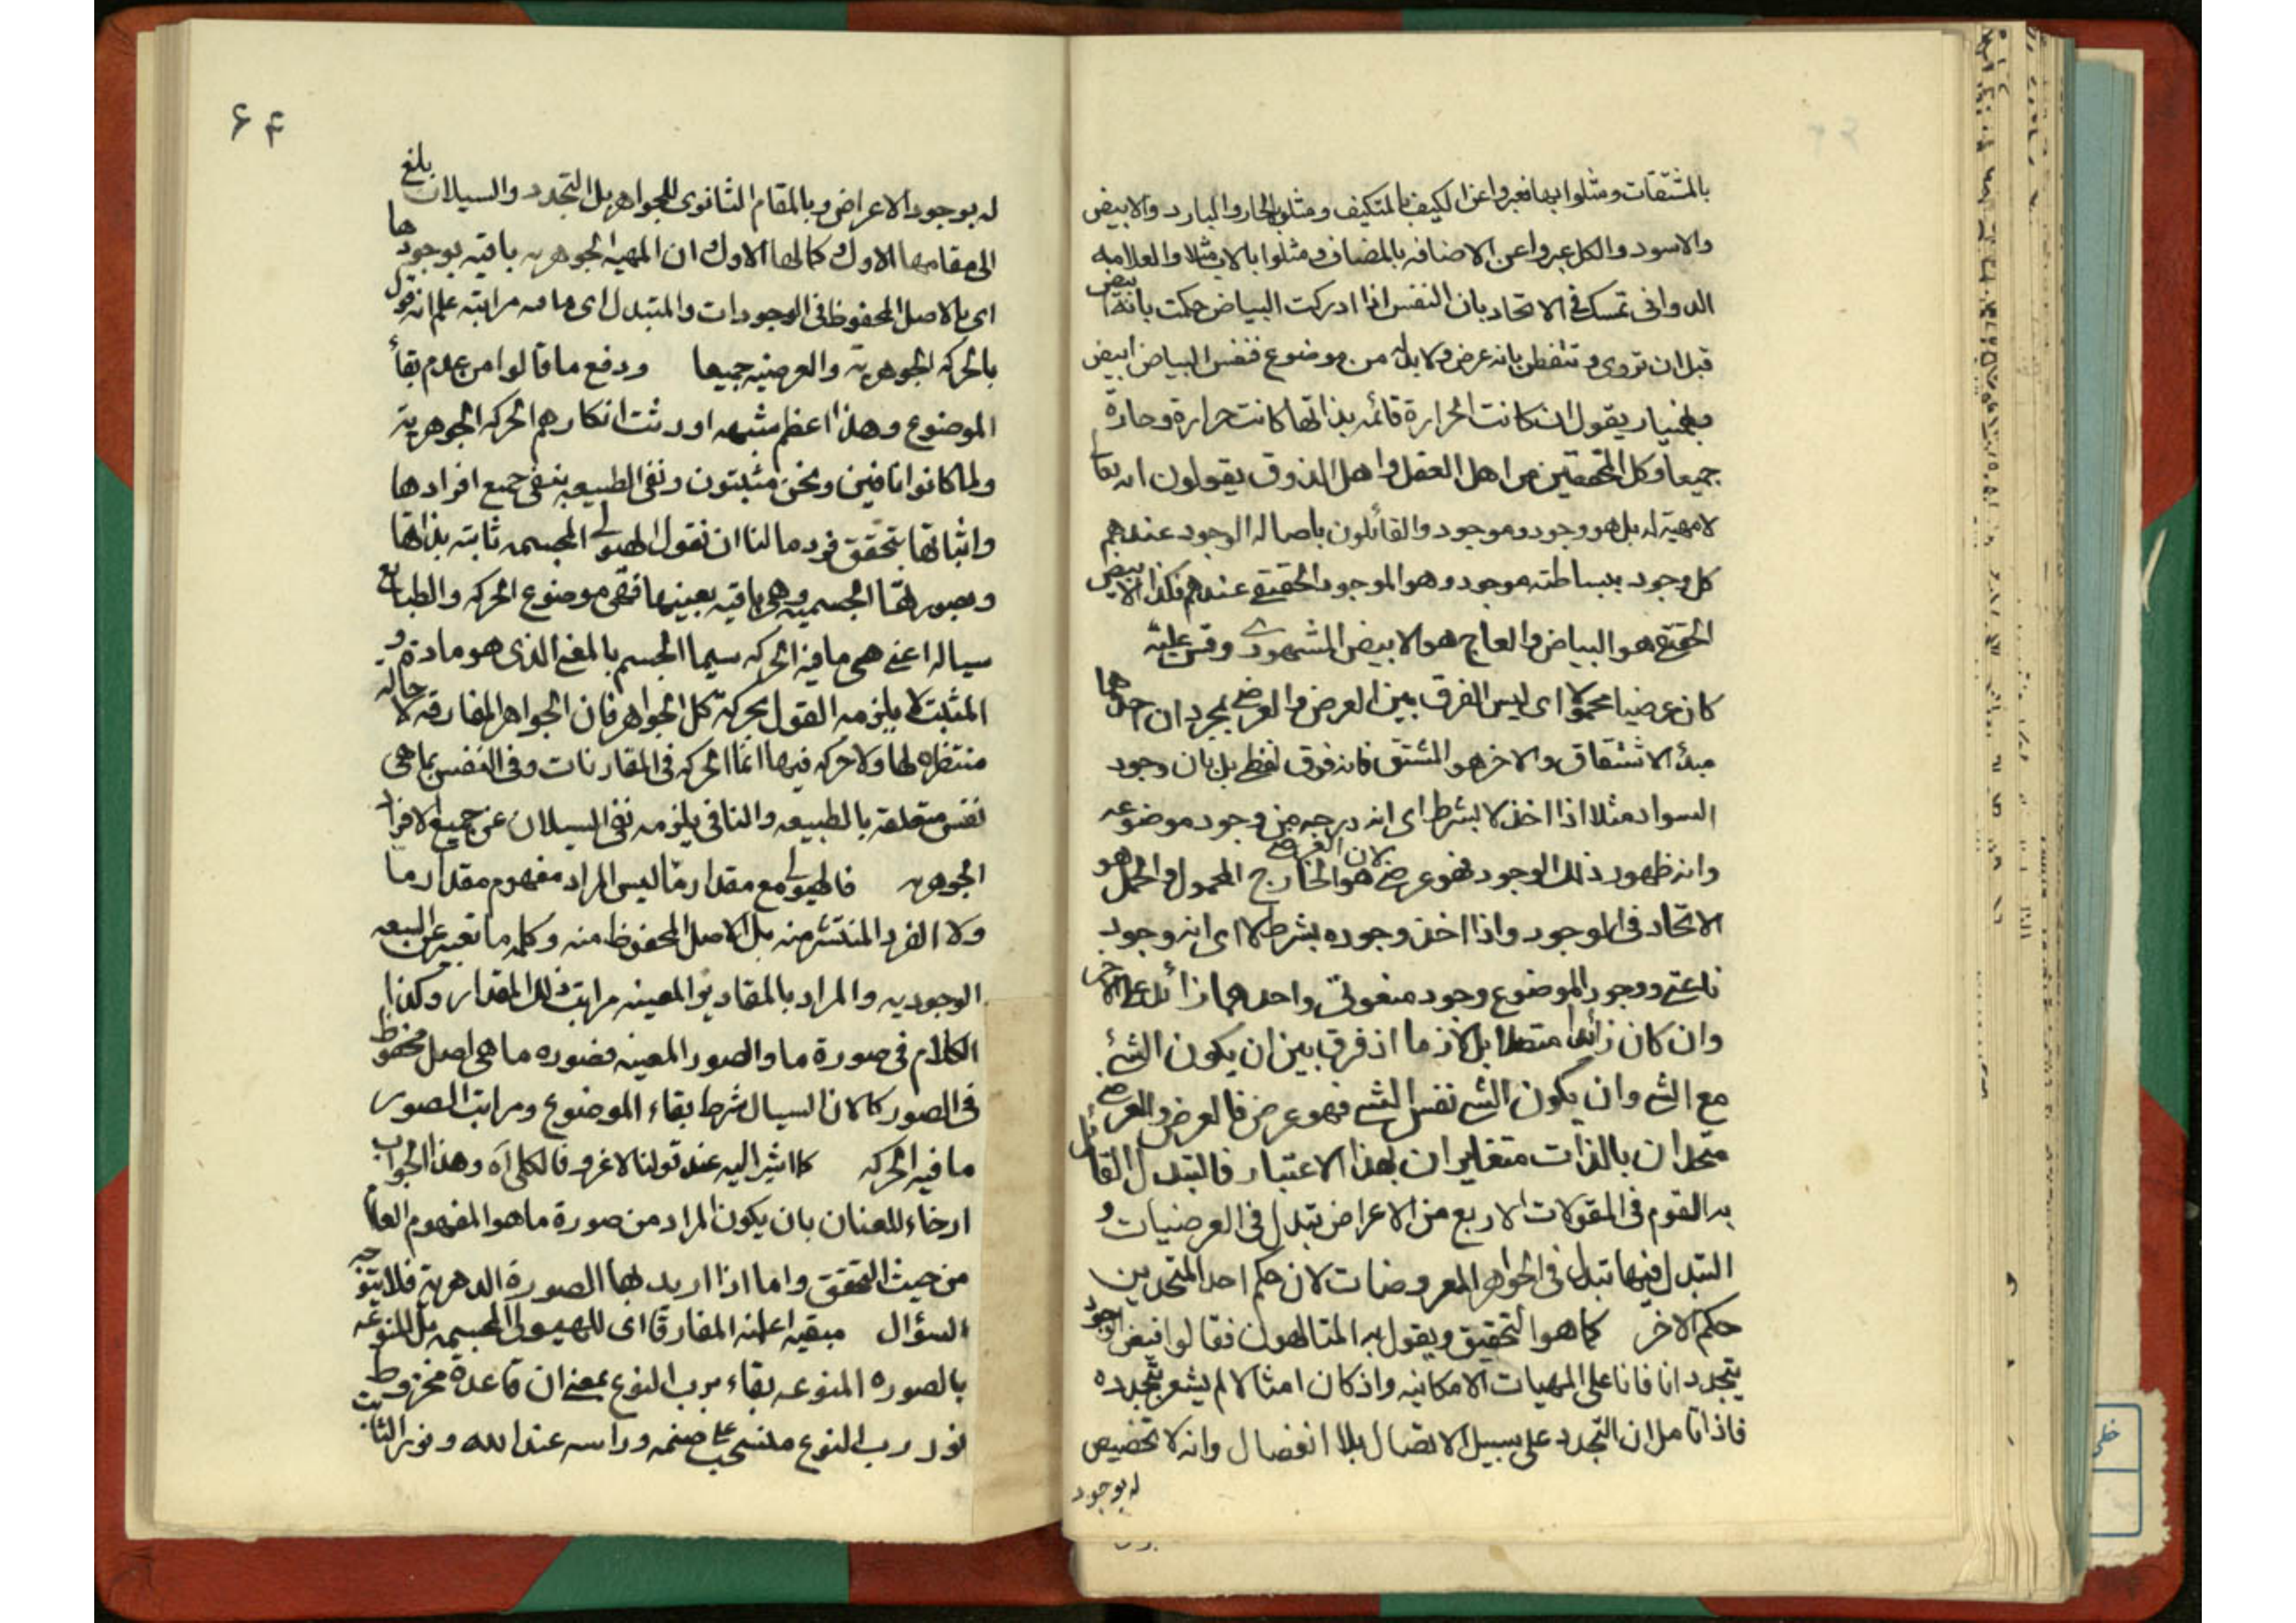 بالمشتقات ومثلوا بها فعبروا عن الكيف بالمتكيف ومثلوا بالحار والبارد والابيض
والاسود والكل عبروا عن الاضافه بالمضاف ومثلوا بالاب مثلا والعلامه
الدوانى تمسك فى الاتحاد بان النفس اذا ادركت البياض حكمت بانه ابيض
قبل ان تروى وتتفطن بانه عرض ولا بد له من موضوع فنفس البياض ابيض
وبهمنيار يقول ان كانت الحرارة قائمه بذاتها كانت حرارة وحارة
جميعا وكل المحققين من اهل العقل واهل الذوق يقولون انه تعا
لا مهية له بل هو وجود وموجود والقائلون باصاله الوجود عندهم
كل وجود ببساطته موجود وهو الموجود الحقيقى عندهم فكذا الابيض
الحقيقى هو البياض والعاج هو الابيض المشهورى وقس عليه
كان عرضيا محمولا اى ليس الفرق بين العرض والعرضى بمجرد ان احدهما
مبدأ الاشتقاق والاخر هو المشتق فانه فرق لفظى بل بان وجود
السواد مثلا اذا اخذ لا بشرط اى انه درجه من وجود موضوعه
وانه ظهور ذلك الوجود فهو عرضى لان العرضى هو الخارج المحمول والحمل هو
الاتحاد فى الوجود واذا اخذ وجوده بشرط لا اى انه وجود
ناعتى ووجود الموضوع وجود منعوتى واحدهما زائد على الاخر
وان كان زائدا متصلا بل لازما اذ فرق بين ان يكون الشئ
مع الشئ وان يكون الشئ نفس الشئ فهو عرض فالعرض والعرضى
متحدان بالذات متغايران بهذا الاعتبار فالتبدل القائل
به القوم فى المقولات الاربع من الاعراض تبدل فى العرضيات و
التبدل فيها تبدل فى الجواهر المعروضات لان حكم احد المتحدين
حكم الاخر كما هو التحقيق ويقول به المتالهون فقالوا فيض الوجود
يتجدد انا فانا على المهيات الامكانيه واذ كان امثالا لم يشعر بتجدده
فاذا تامل ان التجدد على سبيل الاتصال بلا انفصال وانه لا تخصيص
له بوجود
۶۴
بلغ
له بوجود الاعراض وبالمقام الثانوى للجواهر بل التجدد والسيلان
الى مقامها الاول وكمالها الاول ان المهية الجوهريه باقيه بوجودها
اى بالاصل المحفوظ فى الوجودات والمتبدل اى ما فيه مراتبه علم انه قول
بالحركه الجوهرية والعرضيه جميعا ودفع ما قالوا من عدم بقأ
الموضوع وهذا اعظم شبهه اورثت انكارهم الحركه الجوهرية
ولما كانوا نافين ونحن مثبتون ونفى الطبيعه بنفى جميع افرادها
واثباتها بتحقق فرد ما لنا ان نقول الهيولى المجسمه ثابته بذاتها
وبصورتها الجسميه وهى باقيه بعينها فهى موضوع الحركه والطبايع
سياله اعنى هى ما فيه الحركه سيما الجسم بالمعنى الذى هو مادة و
المثبت لا يلزمه القول بحركة كل الجواهر فان الجواهر المفارقه لا حاله
منتظره لها ولا حركه فيها انما الحركه فى المقارنات وفى النفس بما هى
نفس متعلقه بالطبيعه والنافى يلزمه نفى السيلان عن جميع الافراد
الجوهريه فالهيولى مع مقدار ما ليس المراد مفهوم مقدار ما
ولا الفرد المنتشر منه بل الاصل المحفوظ منه وكلمه ما تعبير عن السعه
الوجوديه والمراد بالمقادير المعينه مراتب ذلك المقدار وكذا
الكلام فى صورة ما والصور المعينه فصوره ما هى اصل محفوظ
فى الصور كالان السيال شرط بقاء الموضوع ومراتب الصور
ما فيه الحركه كما اشير اليه عند قولنا لا غرو فالكلى آه وهذا الجواب
ارخاء للعنان بان يكون المراد من صورة ما هو المفهوم العام
من حيث التحقق واما اذا اريد بها الصورة الدهرية فلا يتوجه
السؤال مبقيه اعلنه المفارقا اى للهيولى المجسمه بل المنوعه
بالصوره المنوعه بقاء برب النوع بمعنى ان قاعدة مخروط
نور رب النوع منسحب على صنمه وراسه عند الله ونور الثابت